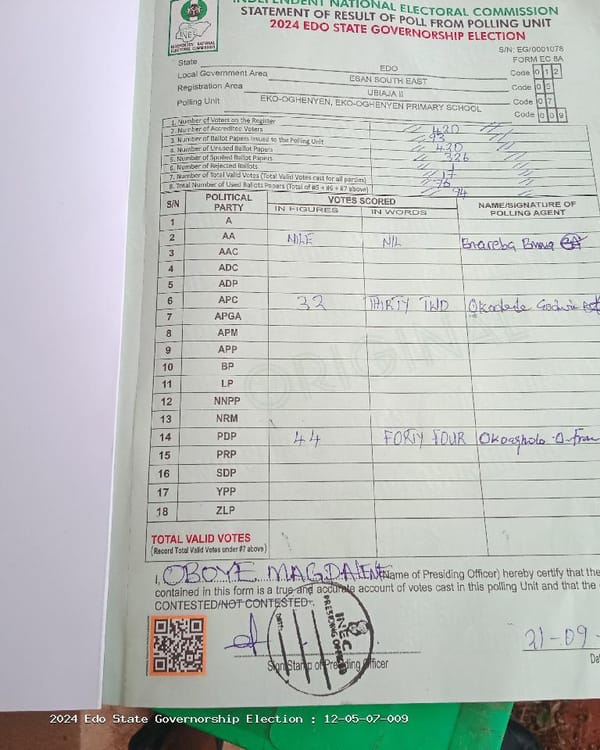 INDEPENDENT NATIONAL ELECTORAL COMMISSION
STATEMENT OF RESULT OF POLL FROM POLLING UNIT
2024 EDO STATE GOVERNORSHIP ELECTION
S/N: EG/0001078
FORM EC 8A
State EDO Code 012
Local Government Area ESAN SOUTH EAST Code 05
Registration Area UBIAJA II Code 07
Polling Unit EKO-OGHENYEN, EKO-OGHENYEN PRIMARY SCHOOL Code 009
1. Number of Voters on the Register 420
2. Number of Accredited Voters
3. Number of Ballot Papers Issued to the Polling Unit 420
4. Number of Unused Ballot Papers 326
5. Number of Spoiled Ballot Papers
6. Number of Rejected Ballots 17
7. Number of Total Valid Votes (Total Valid Votes cast for all parties) 76
8. Total Number of Used Ballots Papers (Total of #5 + #6 + #7 above) 94
S/N POLITICAL PARTY VOTES SCORED NAME/SIGNATURE OF POLLING AGENT
IN FIGURES IN WORDS
1 A
2 AA NILE NIL
3 AAC
4 ADC
5 ADP
6 APC 32 THIRTY TWO
7 APGA
8 APM
9 APP
10 BP
11 LP
12 NNPP
13 NRM
14 PDP 44 FORTY FOUR
15 PRP
16 SDP
17 YPP
18 ZLP
ORIGINAL
TOTAL VALID VOTES
(Record Total Valid Votes under #7 above)
I, OBOYE MAGDALENE (Name of Presiding Officer) hereby certify that the
contained in this form is a true and accurate account of votes cast in this polling Unit and that the
CONTESTED/NOT CONTESTED.
INEC
PRESIDING OFFICER
21-09-
Sign/Stamp of Presiding Officer
2024 Edo State Governorship Election : 12-05-07-009